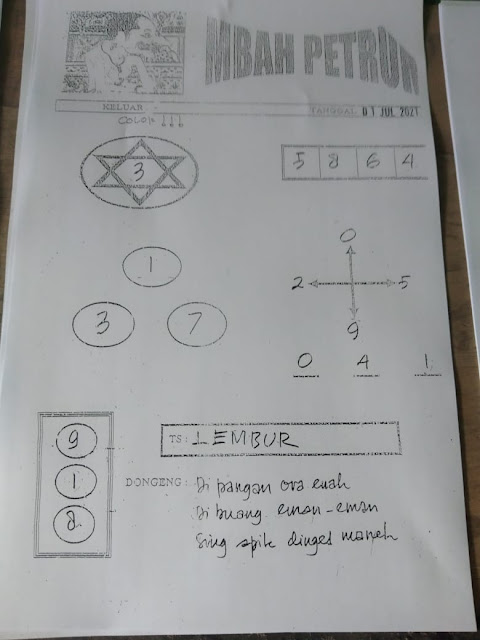 MBAH PETRUK
KELUAR
TANGGAL 01 JUL 2021
COLOK !!!
3
5 8 6 4
1
3 7
0
2 5
9
0 4 1
9
1
8
TS: LEMBUR
DONGENG: Di pangan ora enak
Di buang eman-eman
Sing apik dinget maneh